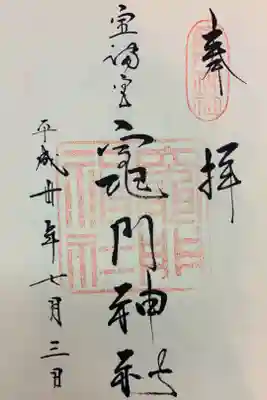 奉拝
宝満宮
竈門神社
平成卅年七月三日